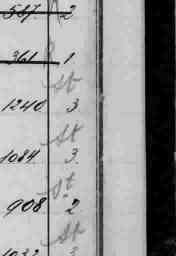 567 2
361 1
St
1240 3
St
1084 3
St
908 2
St
1032 3